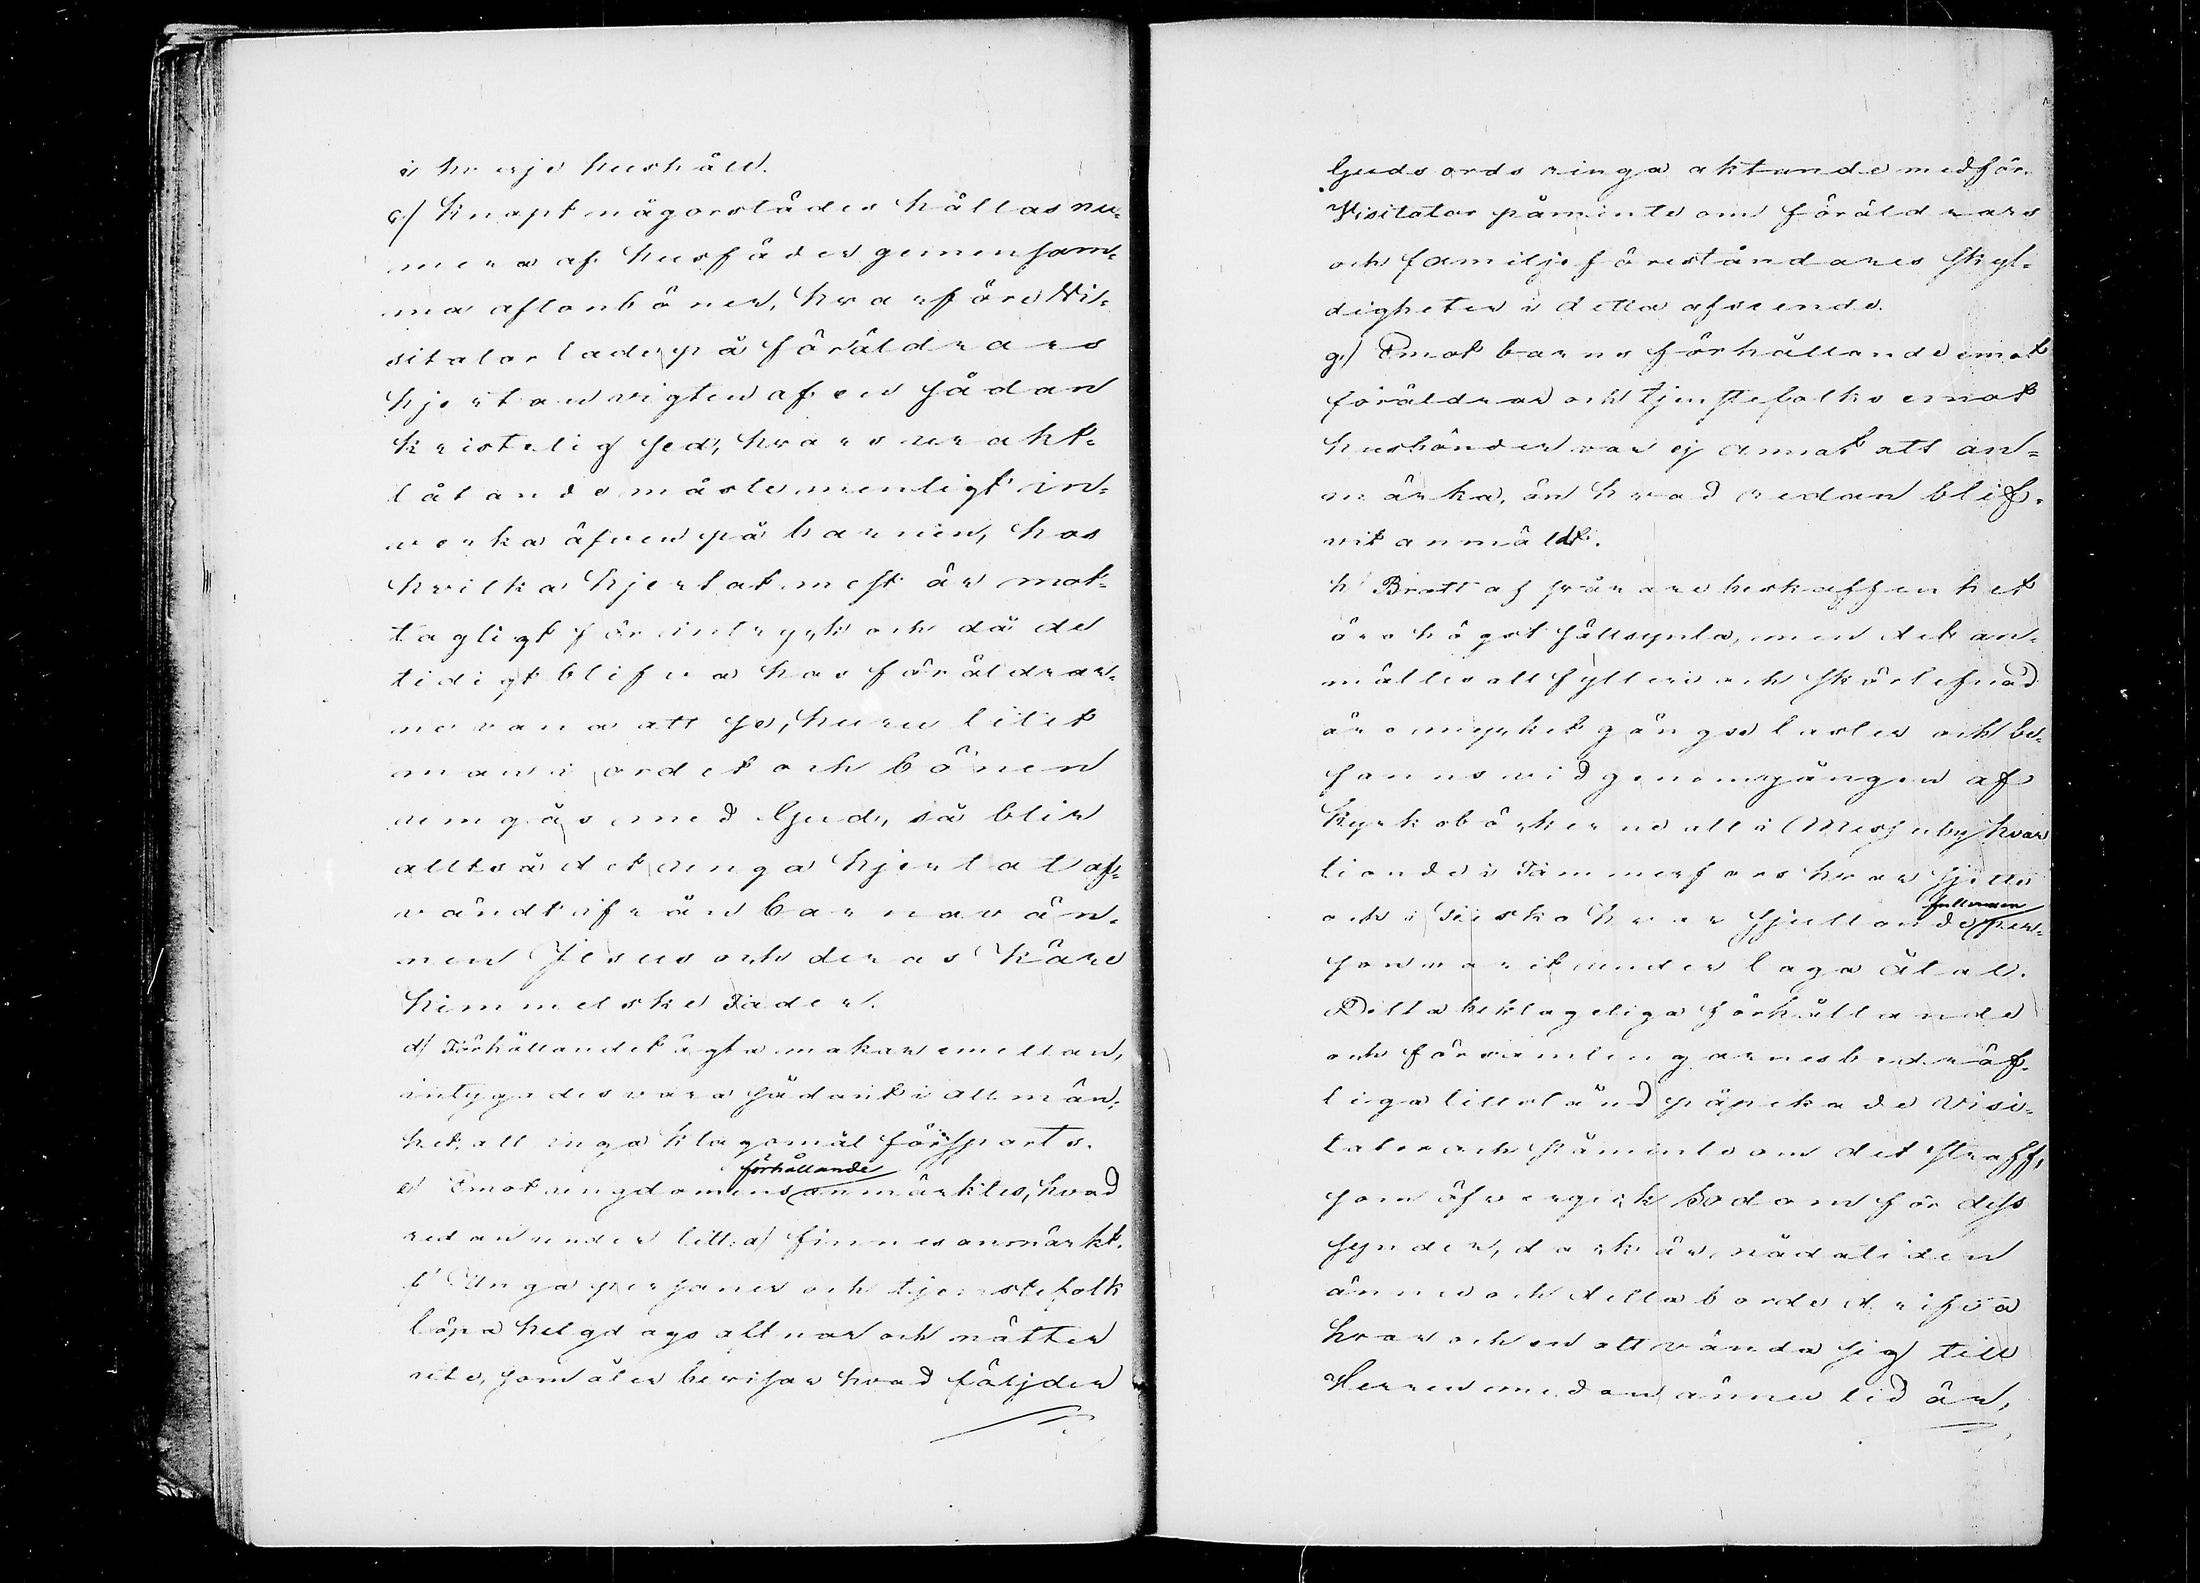 i hvarje hushåll.
c/ Knapt någorstädes hållas nu-
mera af husfäder gemensam-
ma aftonböner, hvarföre Vi-
sitator lade på föräldrars
hjertan vigten af en sådan
kristelig sed, hvars urakt-
låtande måste menligt in-
verka äfven på barnen, hos
hvilka hjertat mest är mot-
tagligt för intryck och då de
tidigt blifva hos föräldrar-
ne vana att se, huru litet
man i ordet och bönen
umgås med Gud, så blir
alltså det unga hjertat af-
vändt ifrån barnavän-
nen Jesus och deras käre
himmelske Fader.
d/ Förhållandet ägta makar emellan,
intygades vara sådant i allmän-
het, att inga klagomål försports.
förhållande
e/ Emot ungdomens anmärktes, hvad
redan under litt: a) finnes anmärkt.
f/ Unga personer och tjenstefolk
löpa helgdags aftnar och nätter
ute, som åter bevisar hvad följder
Guds ords ringa aktande medför.
Visitator påminte om föräldrars
och familjeföreståndares skyl-
digheter i detta afseende.
g/ Emot barns förhållande emot
föräldrar och tjenstefolks emot
husbönder var ej annat att an-
märka, än hvad redan blif-
vit anmäldt.
h/ Brott af svårare beskaffenhet
äro högst sällsynta, men det an-
mältes att fylleri och skörlefnad
äro mycket gängse laster och be-
fanns vid genomgången af
Kyrkoböckerne att i Messuby hvar
tionde i Tammerfors hvar sjette
fullvuxen
och i Teisko hvar sjuttonde per-
son varit under laga åtal.
Detta beklageliga förhållande
och församlingarnes bedröf-
liga tillstånd påpekade Visi-
tator och påminte om det straff,
som öfvergick Sodom för dess
synder, dock är nådatiden
ännu och detta borde drifva
hvar och en att vända sig till
Herren medan ännu tid är,